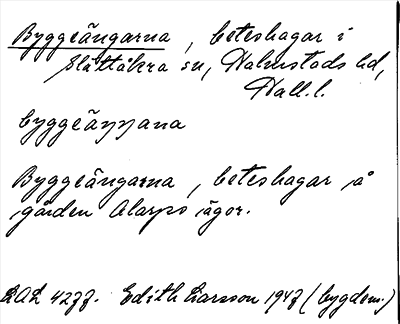 Byggeängarna, beteshagar i
Slättåkra sn, Halmstads hd,
Hall.l.
byggeäŋŋana
Byggeängarna, beteshagar å
gården Alarps ägor.
LAL 4277. Edith Larsson 1947 (bygdem.)